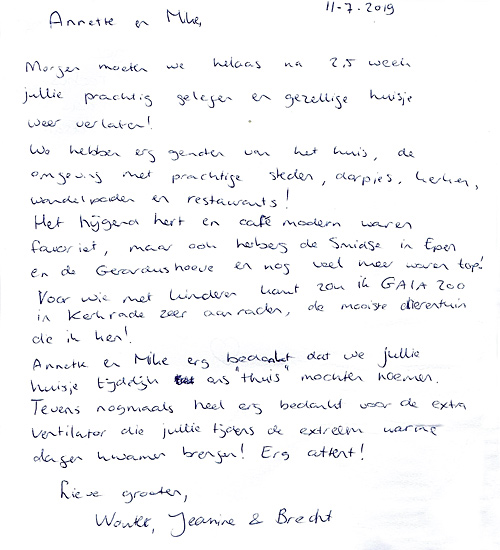 11-7-2019
Annette en Mike,
Morgen moeten we helaas na 2,5 week
jullie prachtig gelegen en gezellige huisje
weer verlaten!
We hebben erg genoten van het huis, de
omgeving met prachtige steden, dorpjes, kerken,
wandelpaden en restaurants!
Het hijgend hert en café modern waren
favoriet, maar ook herberg de Smidse in Epen
en de Gerardushoeve en nog veel meer waren top!
Voor wie met kinderen komt zou ik GAIA ZOO
in Kerkrade zeer aanraden, de mooiste dierentuin
die ik ken!
Annette en Mike erg bedankt dat we jullie
huisje tijdelijk ons "thuis" mochten noemen.
Tevens nogmaals heel erg bedankt voor de extra
ventilator die jullie tijdens de extreem warme
dagen kwamen brengen! Erg attent!
Lieve groeten,
Jeanine & Brecht